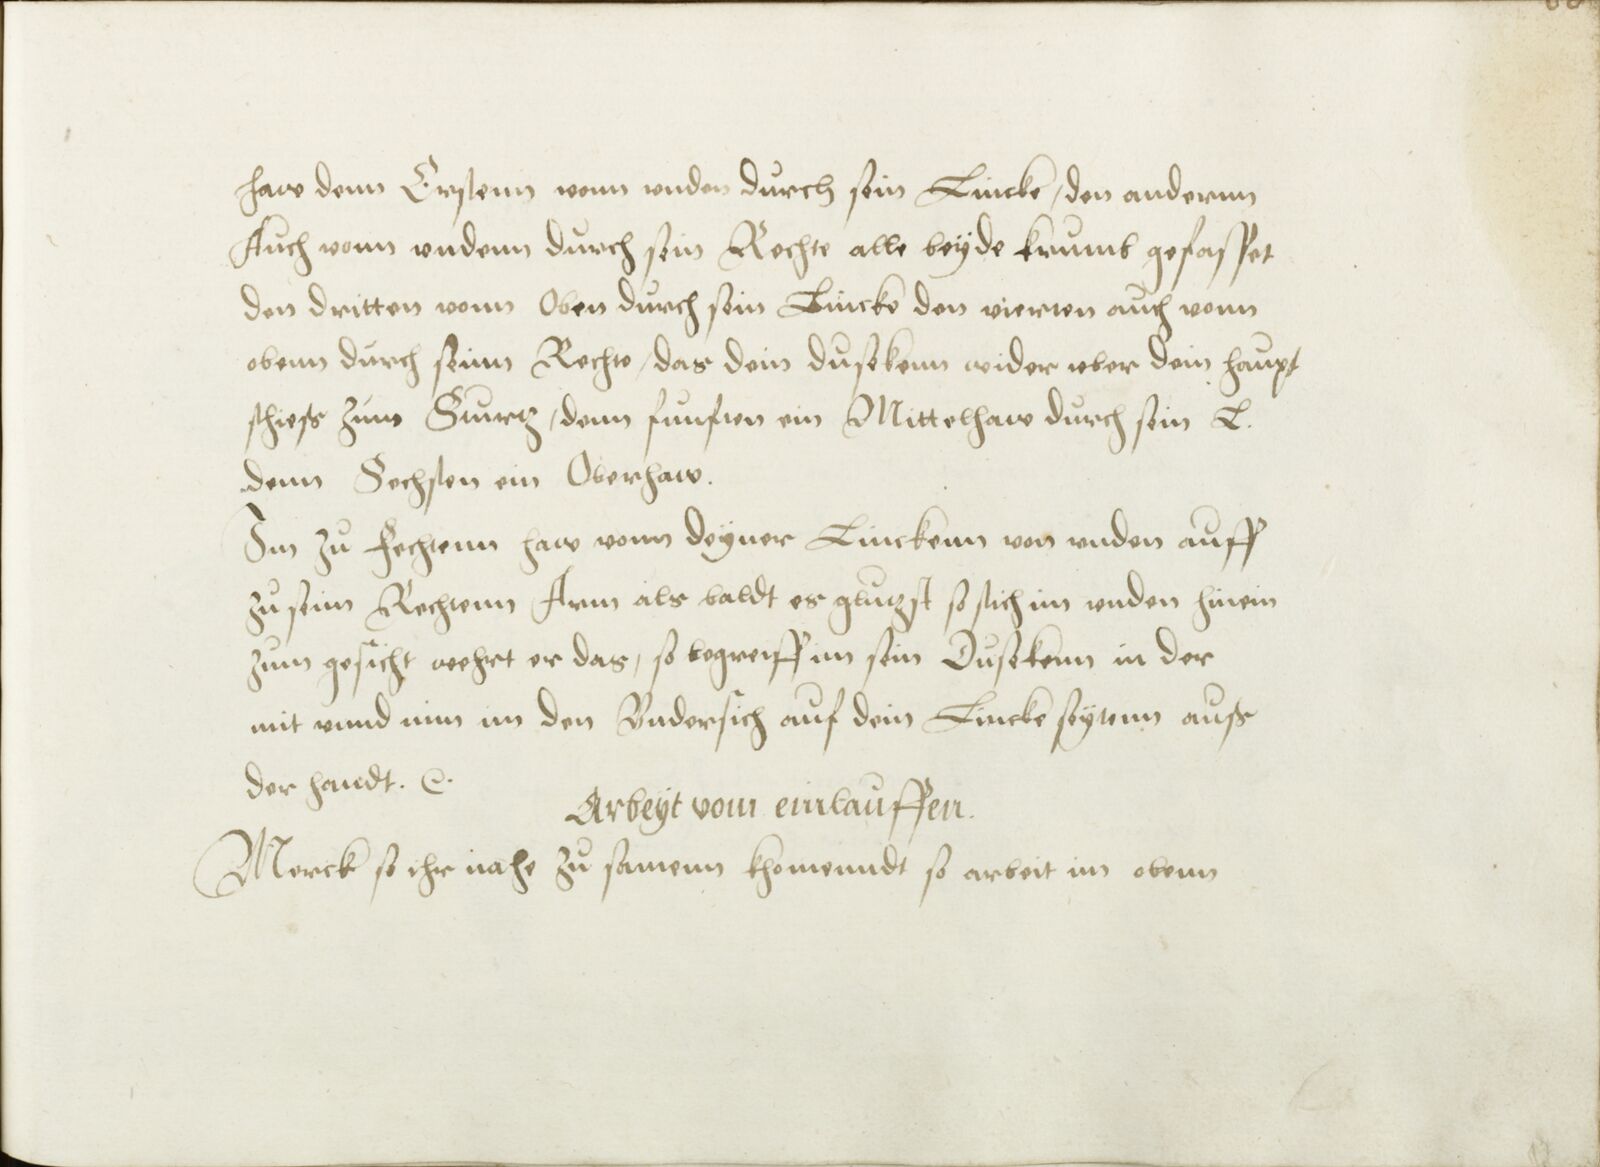 haw denn Erstenn vonn vnden durch sein Lincke / den andernn
Auch vonn vndenn durch sein Rechte alle beyde krumb gefasset
den dritten vonn Oben durch sein Lincke den vierten auch vonn
obenn durch seinn Rechte / das dein dusekenn wider vber dein haupt
schiess zum Sturtz / denn funften ein Mittelhaw durch sein L.
denn Sechsten ein Oberhaw.
Im zu fechtenn haw vonn deyner Linckenn von vnden auff
zu seinn Rechtenn Arm als baldt es glutzst so stich im vnden hinein
zum gesicht wehrt er das, so begreiff im sein Dusekenn in der
mit vnnd nim im den Vndersich auf dein Lincke seytenn auss
der handt.
Arbeyt vom einlauffen.
Merck so ihr nahe zu samenn khomenndt so arbeit im obenn